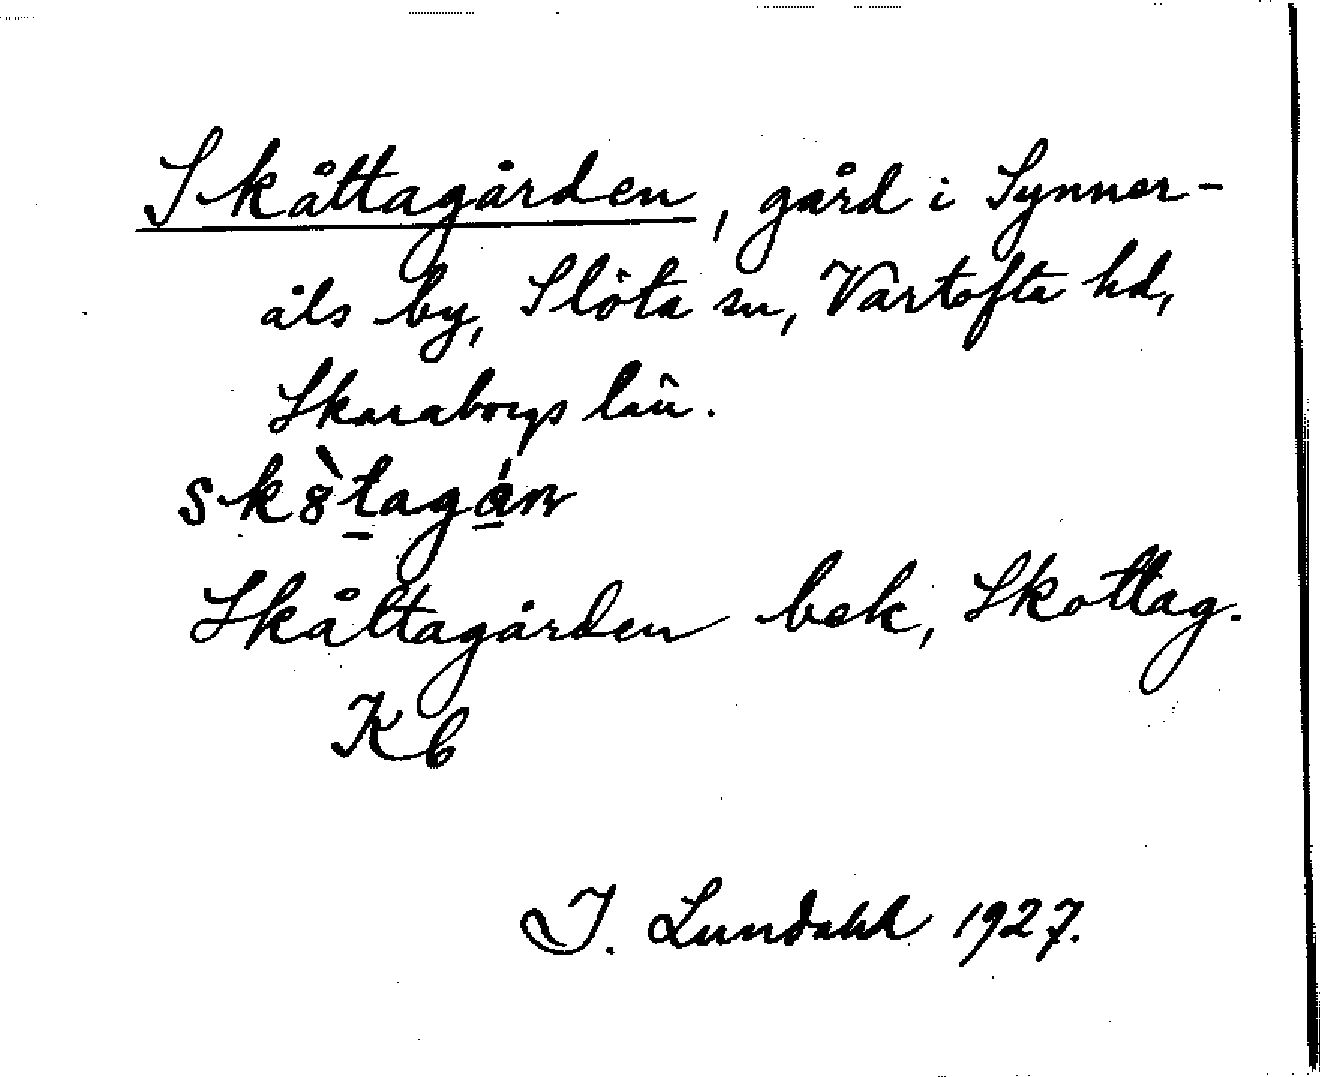 Skåttagården, gård i Synner-
åls by, Slöta sn, Vartofta hd,
Skaraborgs län.
sk8̀tagán
Skåltagården bek, Skottag.
Kb
I. Lundahl 1927.